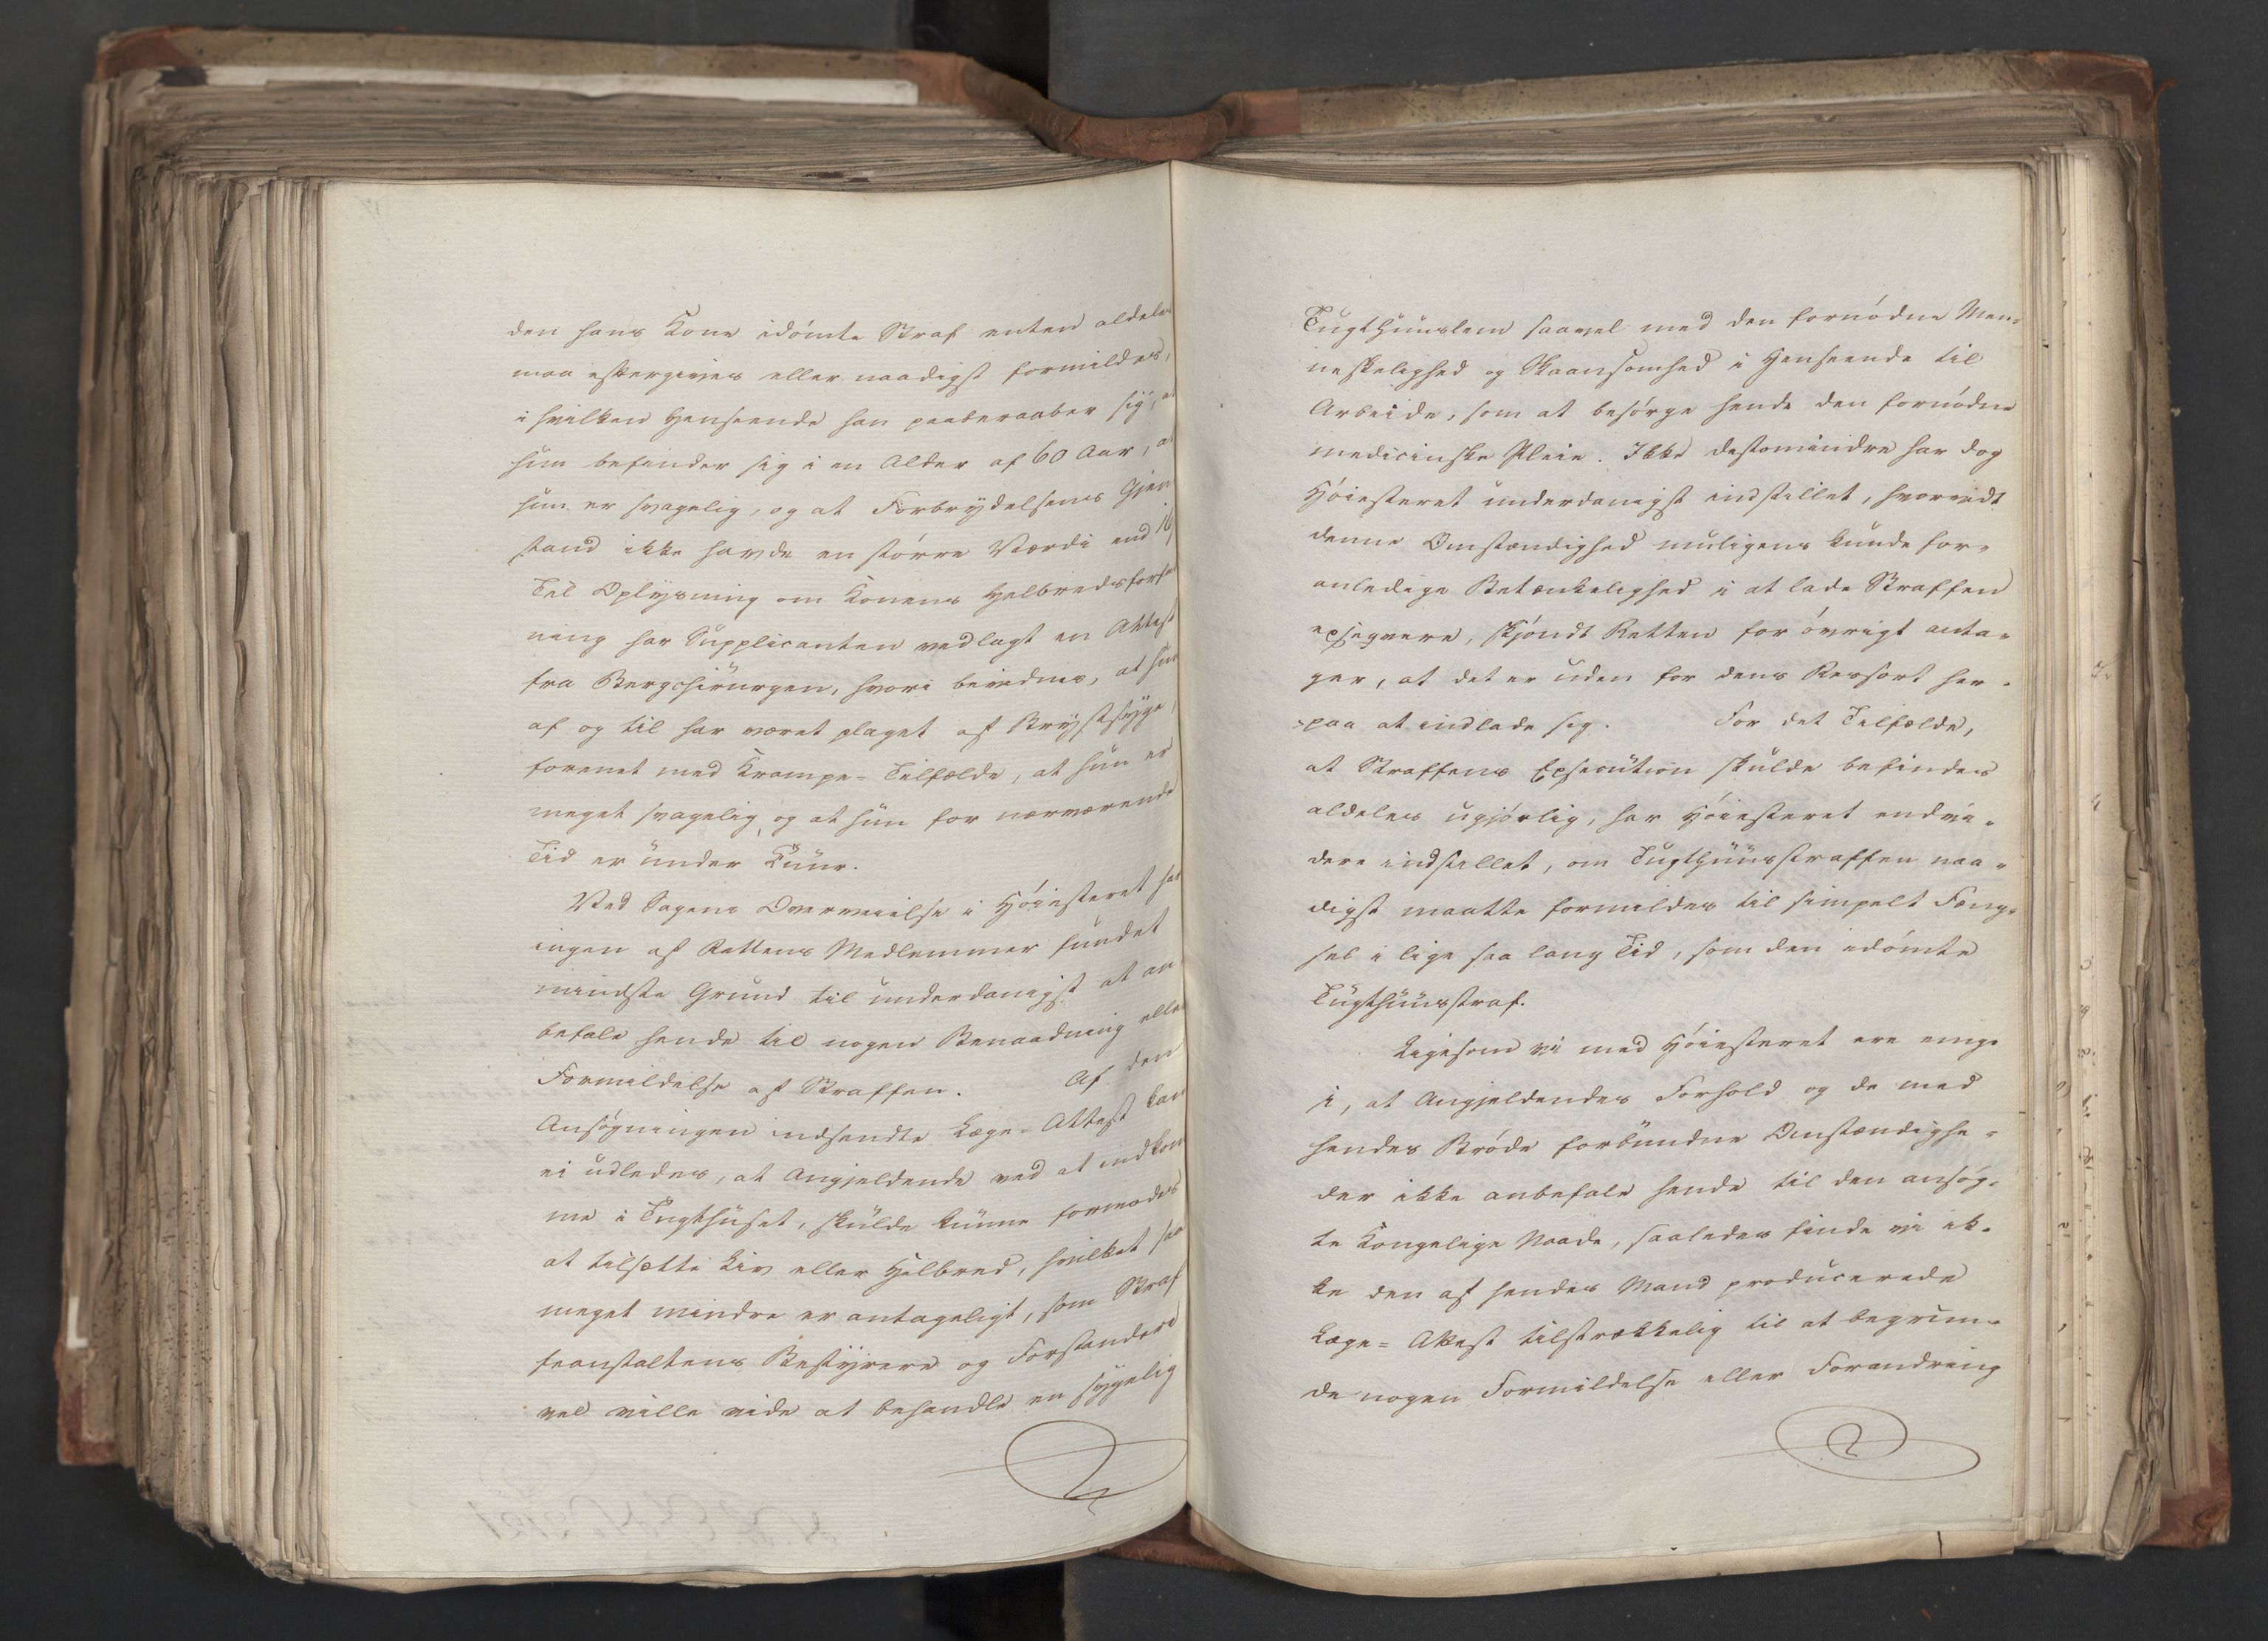 den hans Kone idömte Straf enten aldeles
maa eftergives eller naadigst formildes,
i hvilken Henseende han paaberaaber sig, at
hun befinder sig i en Alder af 60 Aar, at
hun er svagelig, og at Forbrydelsens Gjen
stand ikke havde en större Værdi end
Til Oplysning om Konens Helbredsforfat
ning har Supplicanten vedlagt en Attest
fra Bergchirurgen, hvori bevidnes, at hun
af og til har været plaget af Brystsyge,
forenet med Krampe-Tilfælde, at hun er
meget svagelig, og at hun for nærværende
Tid er under Cuur.
Ved Sagens Overveielse i Höiesteret har
ingen af Rettens Medlemmer fundet
mindste Grund til underdanigst at an
befale hende til nogen Benaadning eller
Formildelse af Straffen. Af den
Ansögningen indsendte Læge-Attest kan
ei udledes, at Angjeldende ved at indkom
me i Tugthuset, skulde kunne formodes
at tilsætte Liv eller Helbred, hvilket saa
meget mindre er antageligt, som Straf
feanstaltens Bestyrere og Forstandere
vel ville vide at behandle en sygelig
Tugthuuslem saavel med den fornödne Men-
neskelighed og Skaansomhed i Henseende til
Arbeide, som at besörge hende den fornödne
medicinske Pleie. Ikke destomindre har dog
Höiesteret underdanigst indstillet, hvorvidt
denne Omstændighed muligens kunde for-
anledige Betænkelighed i at lade Straffen
exseqvere, skjöndt Retten for övrigt anta-
ger, at det er uden for dens Ressort her-
paa at indlade sig. For det Tilfælde,
at Straffens Exsecution skulde befindes
aldeles ugjörlig, har Höiesteret endvi-
dere indstillet, om Tugthuusstraffen naa-
digst maatte formildes til simpelt Fæng-
sel i lige saa lang Tid, som den idömte
Tugthuusstraf.
Ligesom vi med Höiesteret ere enige
i, at Angjeldendes Forhold og de med
hendes Bröde forbundne Omstændighe-
der ikke anbefale hende til den ansög-
te Kongelige Naade, saaledes finde vi ik-
ke den af hendes Mand producerede
Læge-Attest tilstrækkelig til at begrun-
de nogen Formildelse eller Forandring